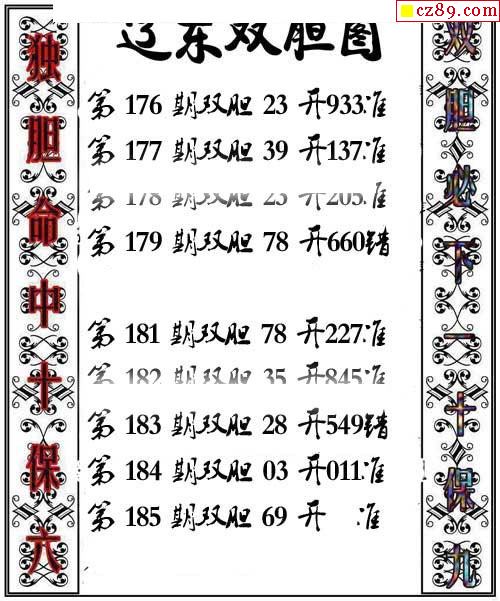 cz89.com
辽东双胆图
独胆命中十保六
第 176 期双胆 23 开933准
第 177 期双胆 39 开137准
第 178 期双胆 23 开205准
第 179 期双胆 78 开660错
第 181 期双胆 78 开227准
第 182 期双胆 35 开845准
第 183 期双胆 28 开549错
第 184 期双胆 03 开011准
第 185 期双胆 69 开 准
双胆必下一十保九